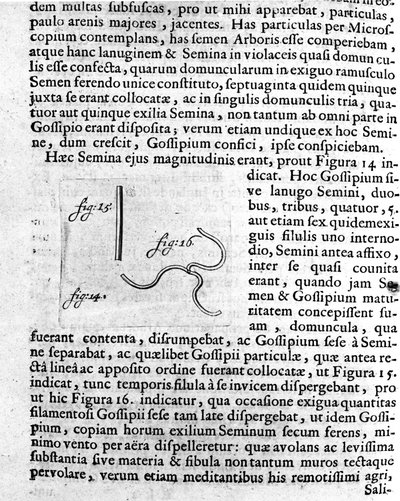 dem multas subfuscas, pro ut mihi apparebat, particulas,
paulo arenis majores, jacentes. Has particulas per Microſ-
copium contemplans, has ſemen Arboris eſſe comperiebam,
atque hanc lanuginem & Semina in violaceis quaſi domun cu-
lis eſſe confecta, quarum domuncularum in exiguo ramuſculo
Semen ferendo unice conſtituto, ſeptuaginta quidem quinque
juxta ſe erant collocatæ, ac in ſingulis domunculis tria, qua-
tuor aut quinque exilia Semina, non tantum ab omni parte in
Goſſipio erant diſpoſita; verum etiam undique ex hoc Semi-
ne, dum creſcit, Goſſipium confici, ipſe conſpiciebam.
Hæc Semina ejus magnitudinis erant, prout Figura 14 in-
dicat. Hoc Goſſipium ſi-
ve lanugo Semini, duo-
bus, tribus, quatuor, 5.
aut etiam ſex quidem exi-
guis filulis uno interno-
dio, Semini antea affixo,
inter ſe quaſi counita
erant, quando jam Se-
men & Goſſipium matu-
ritatem concepiſſent ſu-
am, domuncula, qua
fig:15.
fig:16.
fig:14.
fuerant contenta, diſrumpebat, ac Goſſipium ſeſe à Semi-
ne ſeparabat, ac quælibet Goſſipii particulæ, quæ antea re-
ctâ lineâ ac appoſito ordine fuerant collocatæ, ut Figura 15.
indicat, tunc temporis filula à ſe invicem diſpergebant, pro
ut hic Figur 16. indicatur, qua occaſione exigua quantitas
filamentoſi Goſſipii ſeſe tam late diſpergebat, ut idem Goſſi-
pium, copiam horum exilium Seminum ſecum ferens, mi-
nimo vento per aëra diſpelleretur: quæ avolans ac leviſſima
ſubſtantia ſive materia & fibula non tantum muros tectaque
pervolare, verum etiam meditantibus his remotiſſimi agri,
Sali-